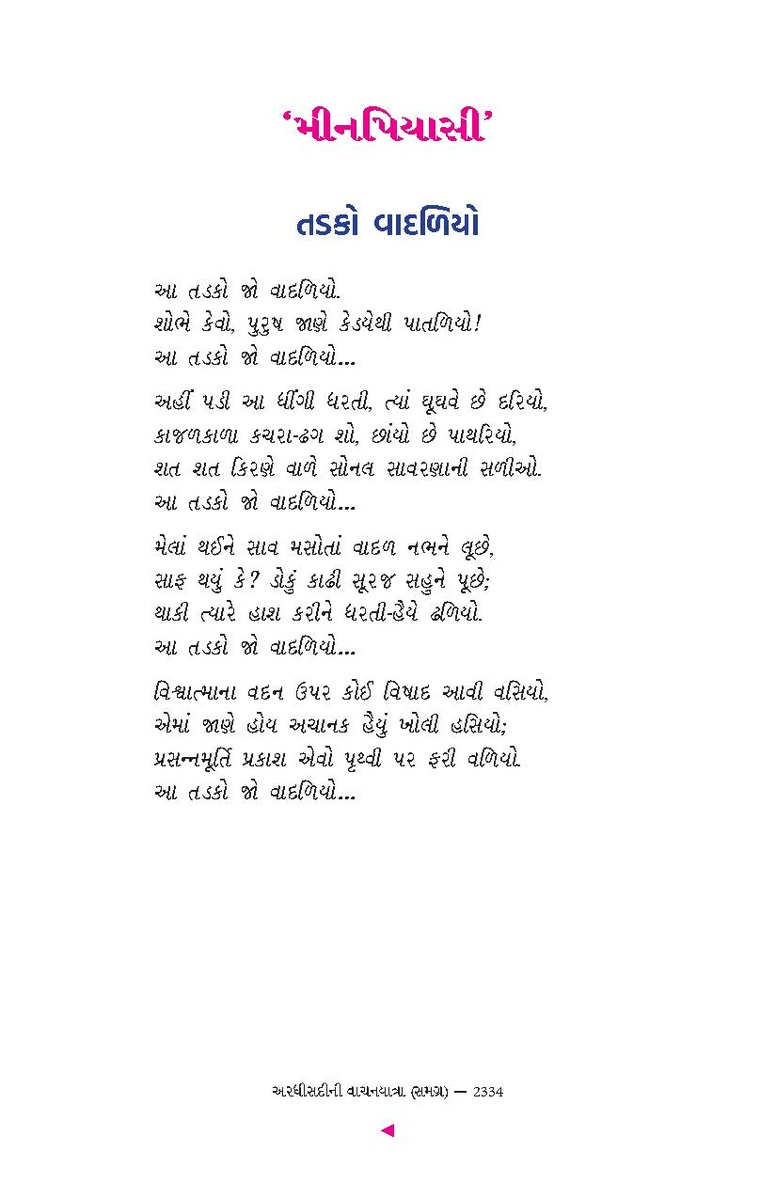 ‘મીનપિયાસી’
તડકો વાદળિયો
આ તડકો જો વાદળિયો.
શોભે કેવો, પુરુષ જાણે કેડયેથી પાતળિયો!
આ તડકો જો વાદળિયો...
અહીં પડી આ ધીંગી ધરતી, ત્યાં ઘૂઘવે છે દરિયો,
કાજળકાળા કચરા-ઢગ શો, છાંયો છે પાથરિયો,
શત શત કિરણે વાળે સોનલ સાવરણાની સળીઓ.
આ તડકો જો વાદળિયો...
મેલાં થઈને સાવ મસોતાં વાદળ નભને લૂછે,
સાફ થયું કે? ડોકું કાઢી સૂરજ સહુને પૂછે;
થાકી ત્યારે હાશ કરીને ધરતી-હૈયે ઢળિયો.
આ તડકો જો વાદળિયો...
વિશ્વાત્માના વદન ઉપર કોઈ વિષાદ આવી વસિયો,
એમાં જાણે હોય અચાનક હૈયું ખોલી હસિયો;
પ્રસન્નમૂર્તિ પ્રકાશ એવો પૃથ્વી પર ફરી વળિયો.
આ તડકો જો વાદળિયો...
અરધીસદીની વાચનયાત્રા (સમગ્ર) — 2334